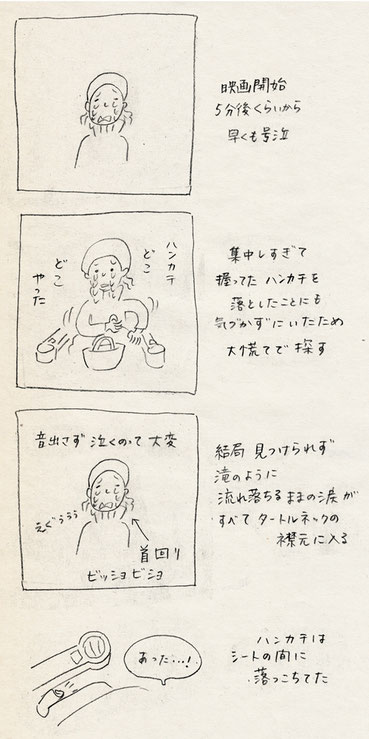 映画開始
5分後くらいから
早くも号泣
ハンカチ
どこ
どこ
やった
集中しすぎて
握ってたハンカチを
落としたことにも
気づかずにいたため
大慌てで探す
音出さず泣くのって大変
えぐううう
首回り
ビッショビショ
結局見つけられず
滝のように
流れ落ちるままの涙が
すべてタートルネックの
襟元に入る
あった…!
ハンカチは
シートの間に
落っこちてた